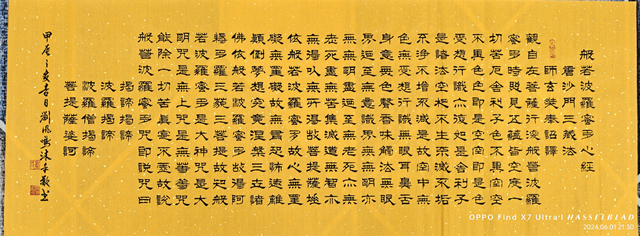 般若波羅蜜多心經
唐沙門三藏法
師玄奘奉詔譯
觀自在菩薩行深般若波羅
蜜多時照見五蘊皆空度一
切苦厄舍利子色不異空空
不異色色即是空空即是色
受想行識亦復如是舍利子
是諸法空相不生不滅不垢
不淨不增不減是故空中無
色無受想行識無眼耳鼻舌
身意無色聲香味觸法無眼
界乃至無意識界無無明亦
無無明盡乃至無老死亦無
老死盡無苦集滅道無智亦
無得以無所得故菩提薩埵
依般若波羅蜜多故心無罣
礙無罣礙故無有恐怖遠離
顛倒夢想究竟涅槃三世諸
佛依般若波羅蜜多故得阿
耨多羅三藐三菩提故知般
若波羅蜜多是大神咒是大
明咒是無上咒是無等等咒
能除一切苦真實不虛故說
般若波羅蜜多咒即說咒曰
揭諦揭諦
波羅揭諦
波羅僧揭諦
菩提薩婆訶
甲辰之夏吉日劉沐手敬書
OPPO Find X7 Ultra | HASSELBLAD
2024.06.01 21:30